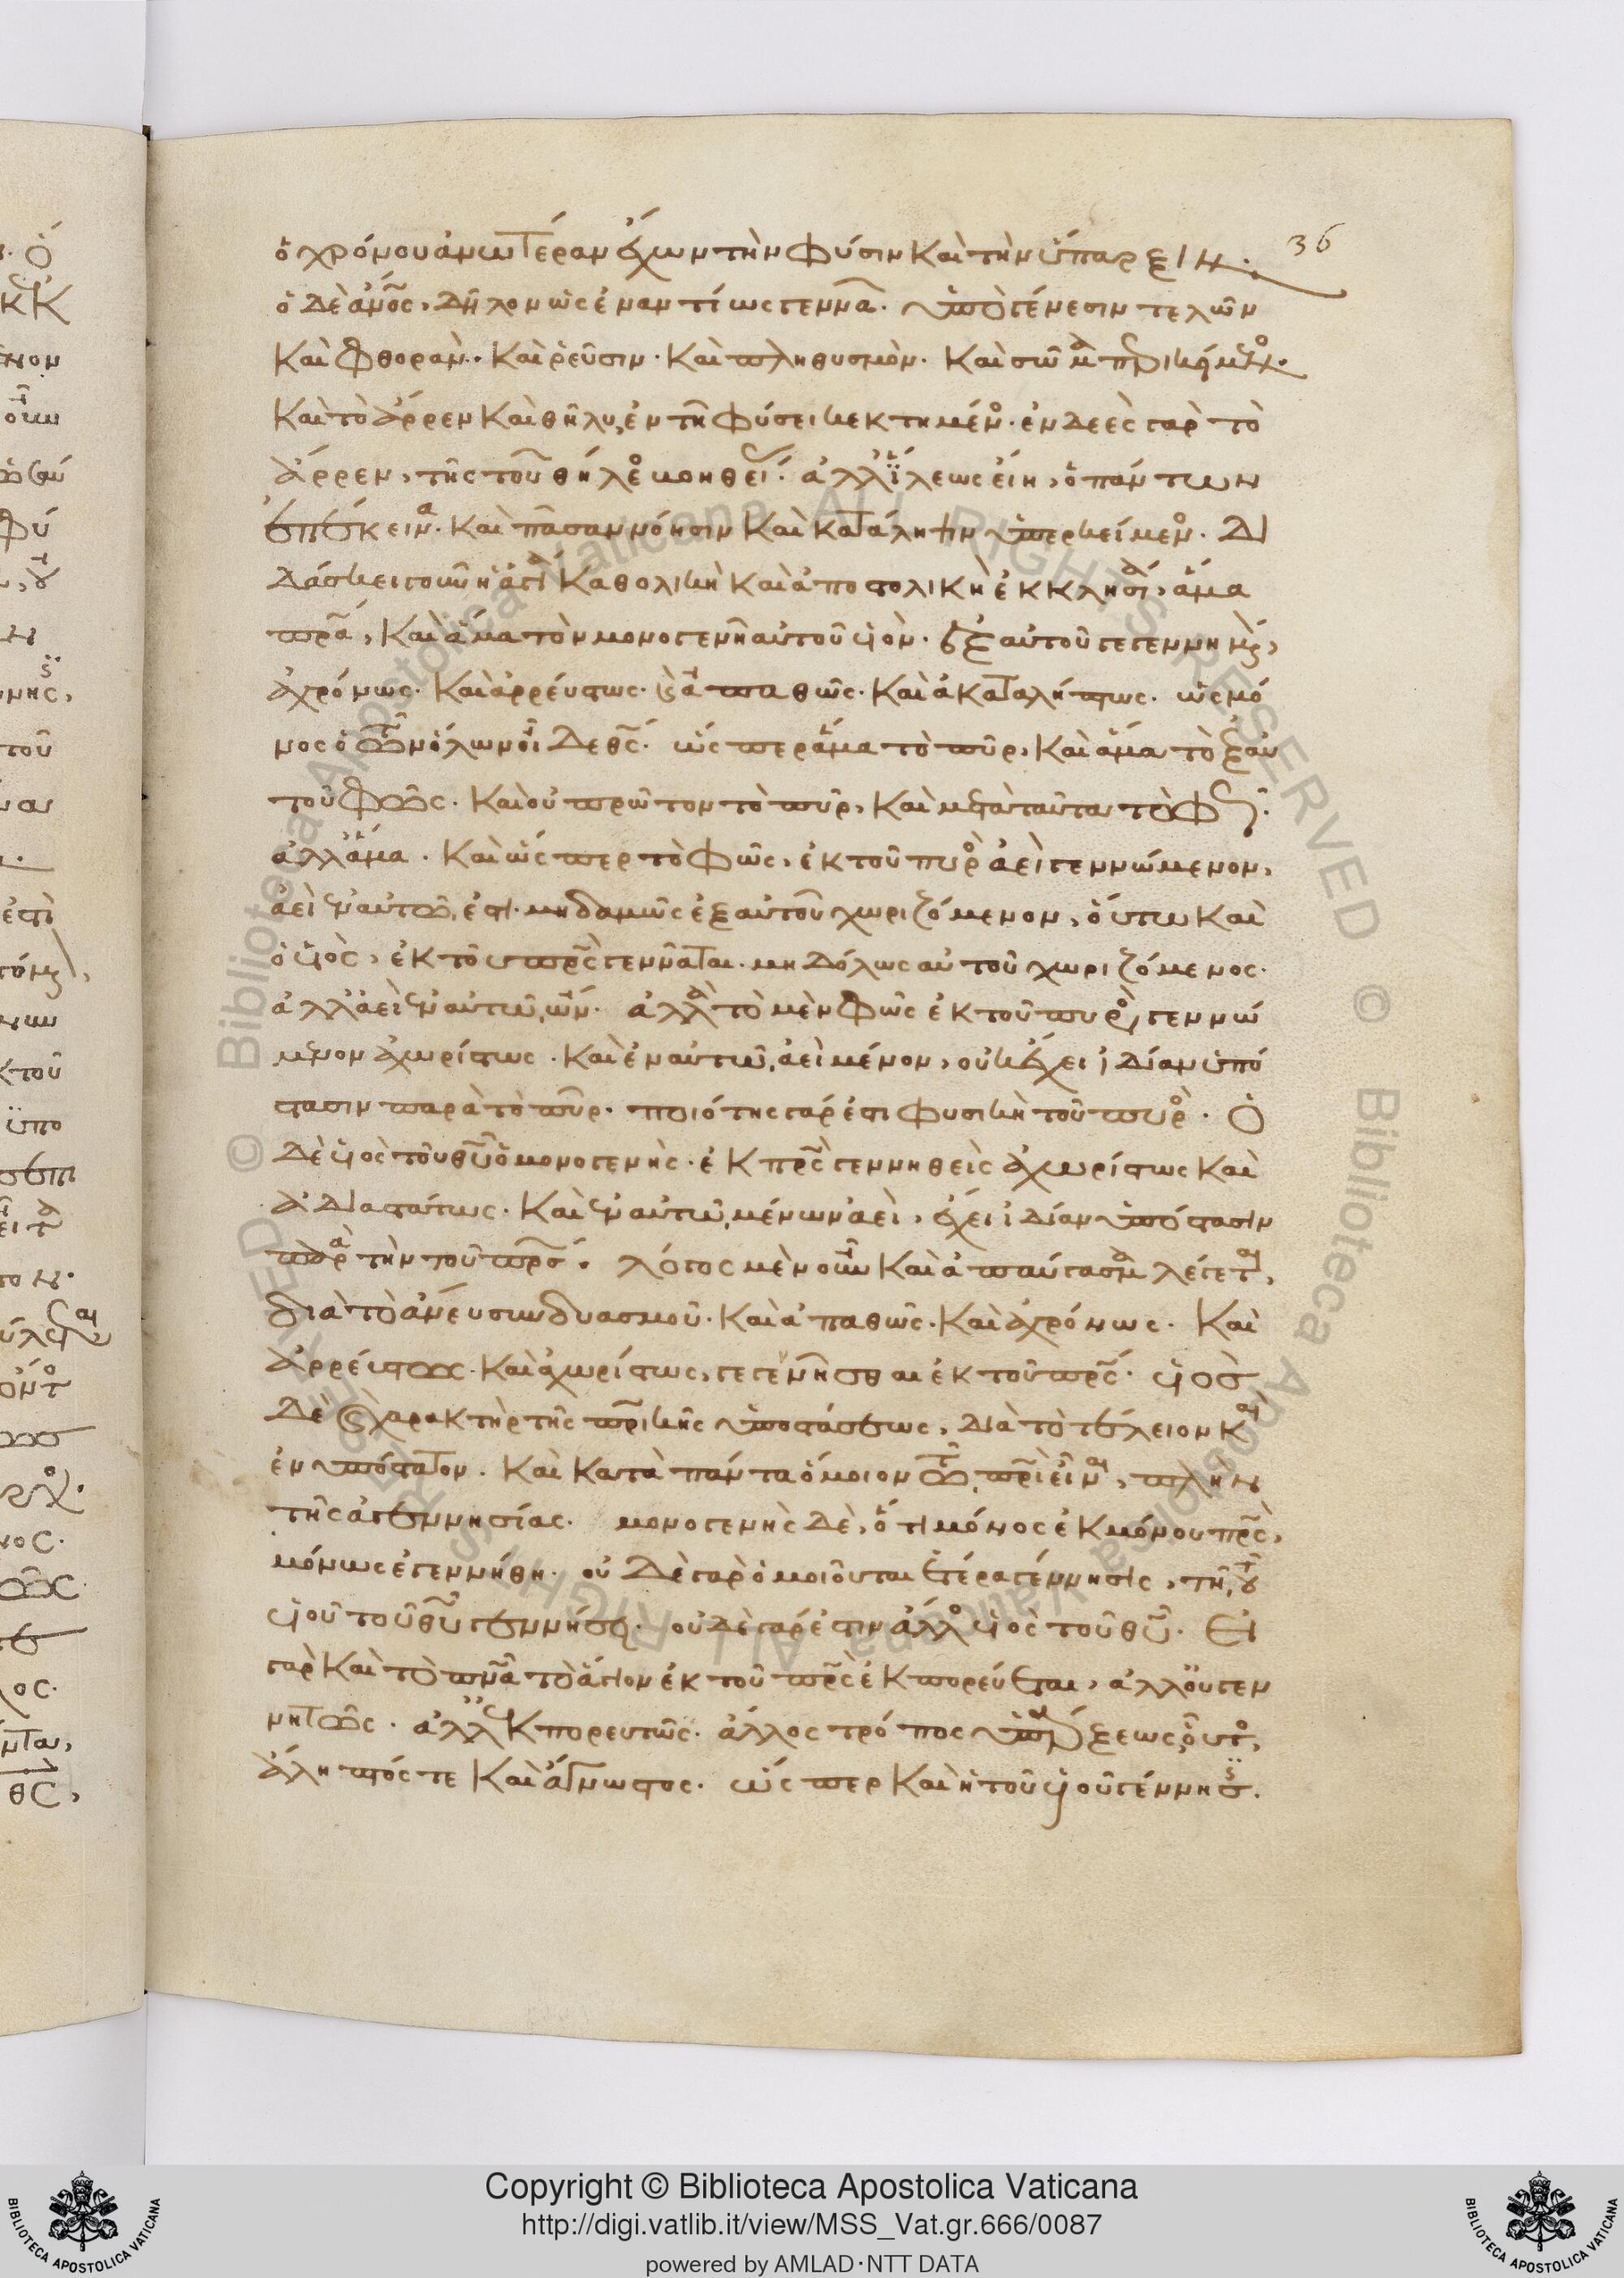 ὁ χρόνου ἀνωτέραν ἔχων τὴν φύσιν καὶ τὴν ὕπαρξιν· 36
ὁ δὲ ἄνος, δῆλον ὡς ἐναντίως γεννᾶ. ὑπὸ γένεσιν τελῶν
καὶ φθορὰν. καὶ ῥεῦσιν. καὶ πληθυσμὸν. καὶ σῶμα περικείμενος.
καὶ τὸ ἄρρεν καὶ θῆλυ, ἐν τῇ φύσει κεκτημένος. ἐνδεὲς γὰρ τὸ
ἄρρεν, τῆς τοῦ θήλεος βοηθείας. ἀλλ' ἵλεως εἴη, ὁ πάντων
ἐπέκεινα. καὶ πᾶσαν νόησιν καὶ κατάληψιν ὑπερκείμενος. δι
δάσκει γοῦν ἡ ἁγία καθολικὴ καὶ ἀποστολικὴ ἐκκλησία, ἅμα
πρα, καὶ ἅμα τὸν μονογενῆ αὐτοῦ υἱὸν. ἐξ αὐτοῦ γεγεννημένον,
ἀχρόνως. καὶ ἀρρεύστως. καὶ ἀπαθῶς. καὶ ἀκαταλήπτως. ὡς μό
νος ὁ τῶν ὅλων οἶδε θς. ὥσπερ ἅμα τὸ πῦρ, καὶ ἅμα τὸ ἐξ αὐ
τοῦ φῶς. καὶ οὐ πρῶτον τὸ πῦρ, καὶ μετὰ ταῦτα τὸ φῶς.
ἀλλ' ἅμα. καὶ ὥσπερ τὸ φῶς, ἐκ τοῦ πυρὸς ἀεὶ γεννώμενον,
ἀεὶ ἐν αὐτῷ ἐστι. μηδαμῶς ἐξ αὐτοῦ χωριζόμενον, οὕτω καὶ
ὁ υἱὸς, ἐκ τοῦ πρς γεννᾶται. μηδόλως αὐτοῦ χωριζόμενος.
ἀλλ' ἀεὶ ἐν αὐτῷ ὤν. ἀλλὰ τὸ μὲν φῶς ἐκ τοῦ πυρὸς γεννώ
μενον ἀχωρίστως. καὶ ἐν αὐτῷ ἀεὶ μένον, οὐκ ἔχει ἰδίαν ὑπό
στασιν παρὰ τὸ πῦρ. ποιότης γάρ ἐστι φυσικὴ τοῦ πυρὸς. Ὁ
δὲ υἱὸς τοῦ θυ ὁ μονογενὴς. ἐκ πρς γεννηθεὶς ἀχωρίστως καὶ
ἀδιαστάτως. καὶ ἐν αὐτῷ μένων ἀεὶ, ἔχει ἰδίαν ὑπόστασιν
παρὰ τὴν τοῦ πρς. λόγος μὲν οὖν καὶ ἀπαύγασμα λέγεται,
διὰ τὸ ἄνευ συνδυασμοῦ. καὶ ἀπαθῶς. καὶ ἀχρόνως. καὶ
ἀρρεύστως. καὶ ἀχωρίστως, γεγεννῆσθαι ἐκ τοῦ πρς. υἱὸς
δὲ καὶ χαρακτὴρ τῆς πρικῆς ὑποστάσεως, διὰ τὸ τέλειον καὶ
ἐνυπόστατον. καὶ κατὰ πάντα ὅμοιον τῷ πρι εἶναι, πλὴν
τῆς ἀγεννησίας. μονογενὴς δὲ, ὅτι μόνος ἐκ μόνου πρς,
μόνως ἐγεννήθη. οὐδὲ γὰρ ὁμοιοῦται ἑτέρα γέννησις, τῇ τοῦ
υἱοῦ τοῦ θυ γεννήσει. οὐδὲ γάρ ἐστιν ἄλλος υἱὸς τοῦ θυ. Εἰ
γὰρ καὶ τὸ πνα τὸ ἅγιον ἐκ τοῦ πρς ἐκπορεύεται, ἀλλ' οὐ γεν
νητῶς. ἀλλ' ἐκπορευτῶς. ἄλλος τρόπος ὑπάρξεως οὗτος,
ἄληπτός τε καὶ ἄγνωστος. ὥσπερ καὶ ἡ τοῦ υἱοῦ γέννησις.
Copyright © Biblioteca Apostolica Vaticana
http://digi.vatlib.it/view/MSS_Vat.gr.666/0087
powered by AMLAD·NTT DATA